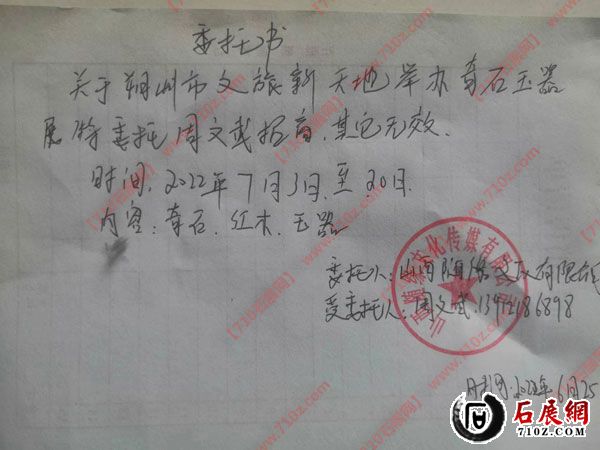 委托书
关于朔州市文旅新天地举办奇石玉器
展,特委托周文武招商,其它无效.
时间.2022年7月3日至20日.
内容:奇石.红木.玉器
委托人:山西 有限公司
受委托人:周文武.13912186898
时间:2022年6月25
文化传媒有限
【710石展网】www.710z.com
石展網
710Z.COM